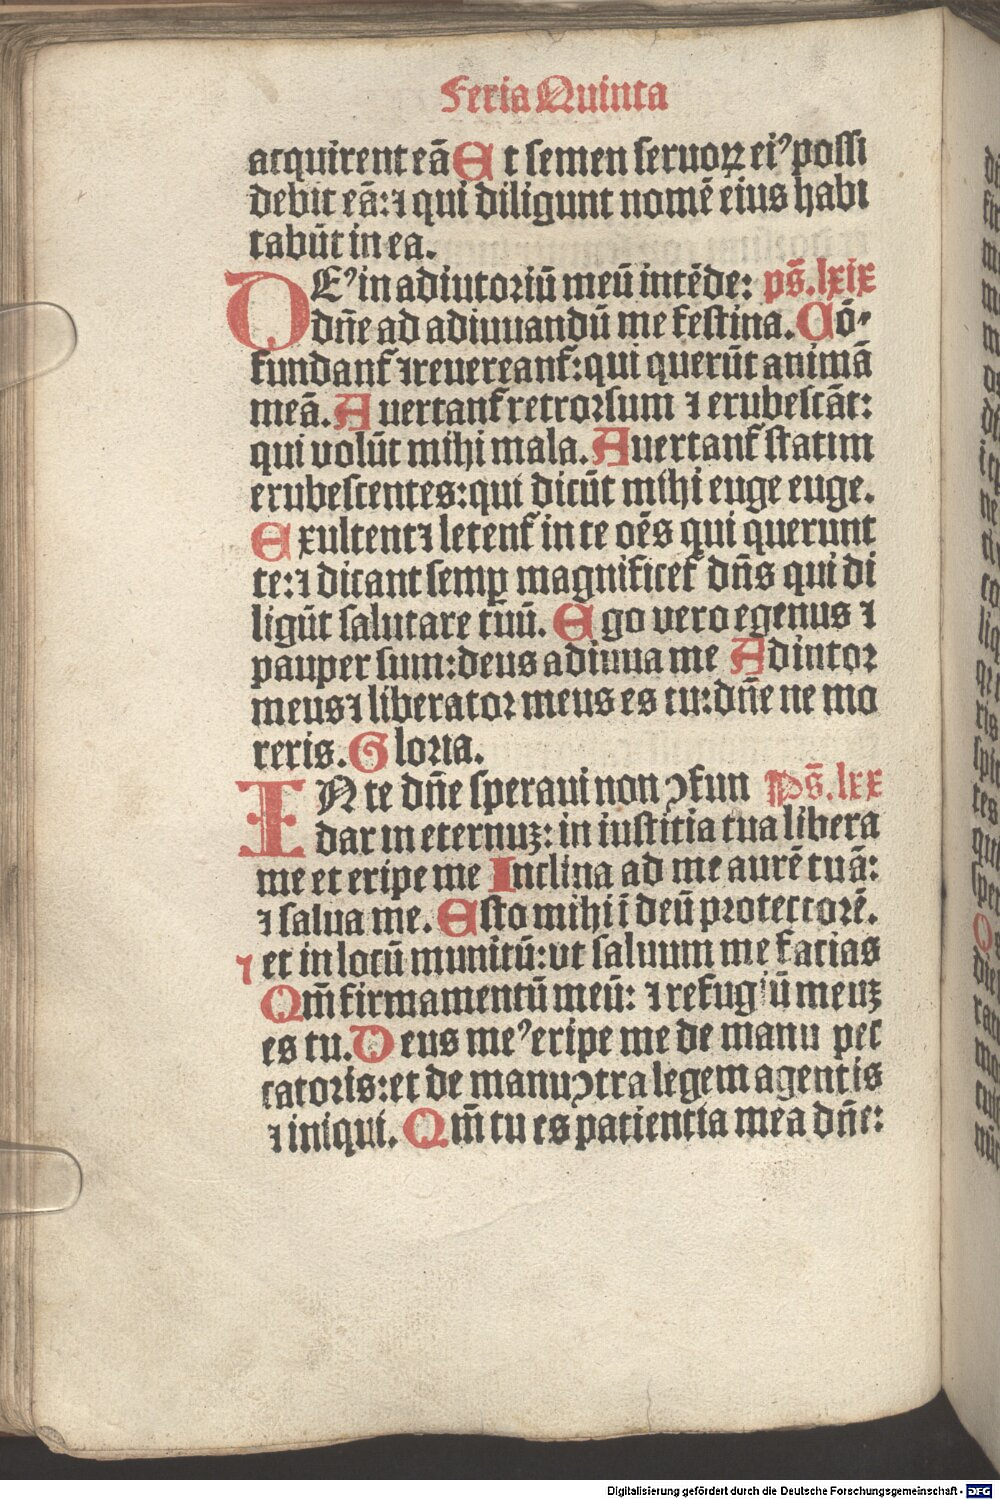 Feria Quinta
acquirent eā Et semen seruoꝝ eiꝰ possi
debit eā: ⁊ qui diligunt nomē eius habi
tabūt in ea.
DEꝰ in adiutoriū meū intēde: ps̄. lxix
dn̄e ad adiuuandū me festina. Cō⸗
fundant᷑ ⁊ reuereant᷑: qui querūt animā
meā. Auertant᷑ retrorsum ⁊ erubescāt:
qui volūt mihi mala. Auertant᷑ statim
erubescentes: qui dicūt mihi euge euge.
Exultent ⁊ letent᷑ in te oēs qui querunt
te: ⁊ dicant semp̲ magnificet᷑ dn̄s qui di
ligūt salutare tuū. Ego vero egenus ⁊
pauper sum: deus adiuua me Adiutor
meus ⁊ liberator meus es tu: dn̄e ne mo
reris. Gloria.
IN te dn̄e speraui non ꝯfun Ps̄. lxx
dar in eternuꝫ: in iusticia tua libera
me et eripe me Inclina ad me aurē tuā:
⁊ salua me. Esto mihi ī deū protectorē.
⁊ et in locū munitū: vt saluum me facias
Qm̄ firmamentū meū: ⁊ refugiū meuꝫ
es tu. Deus meꝰ eripe me de manu pec
catoris: et de manu ꝯtra legem agentis
⁊ iniqui. Qm̄ tu es patientia mea dn̄e:
Digitalisierung gefördert durch die Deutsche Forschungsgemeinschaft - DFG